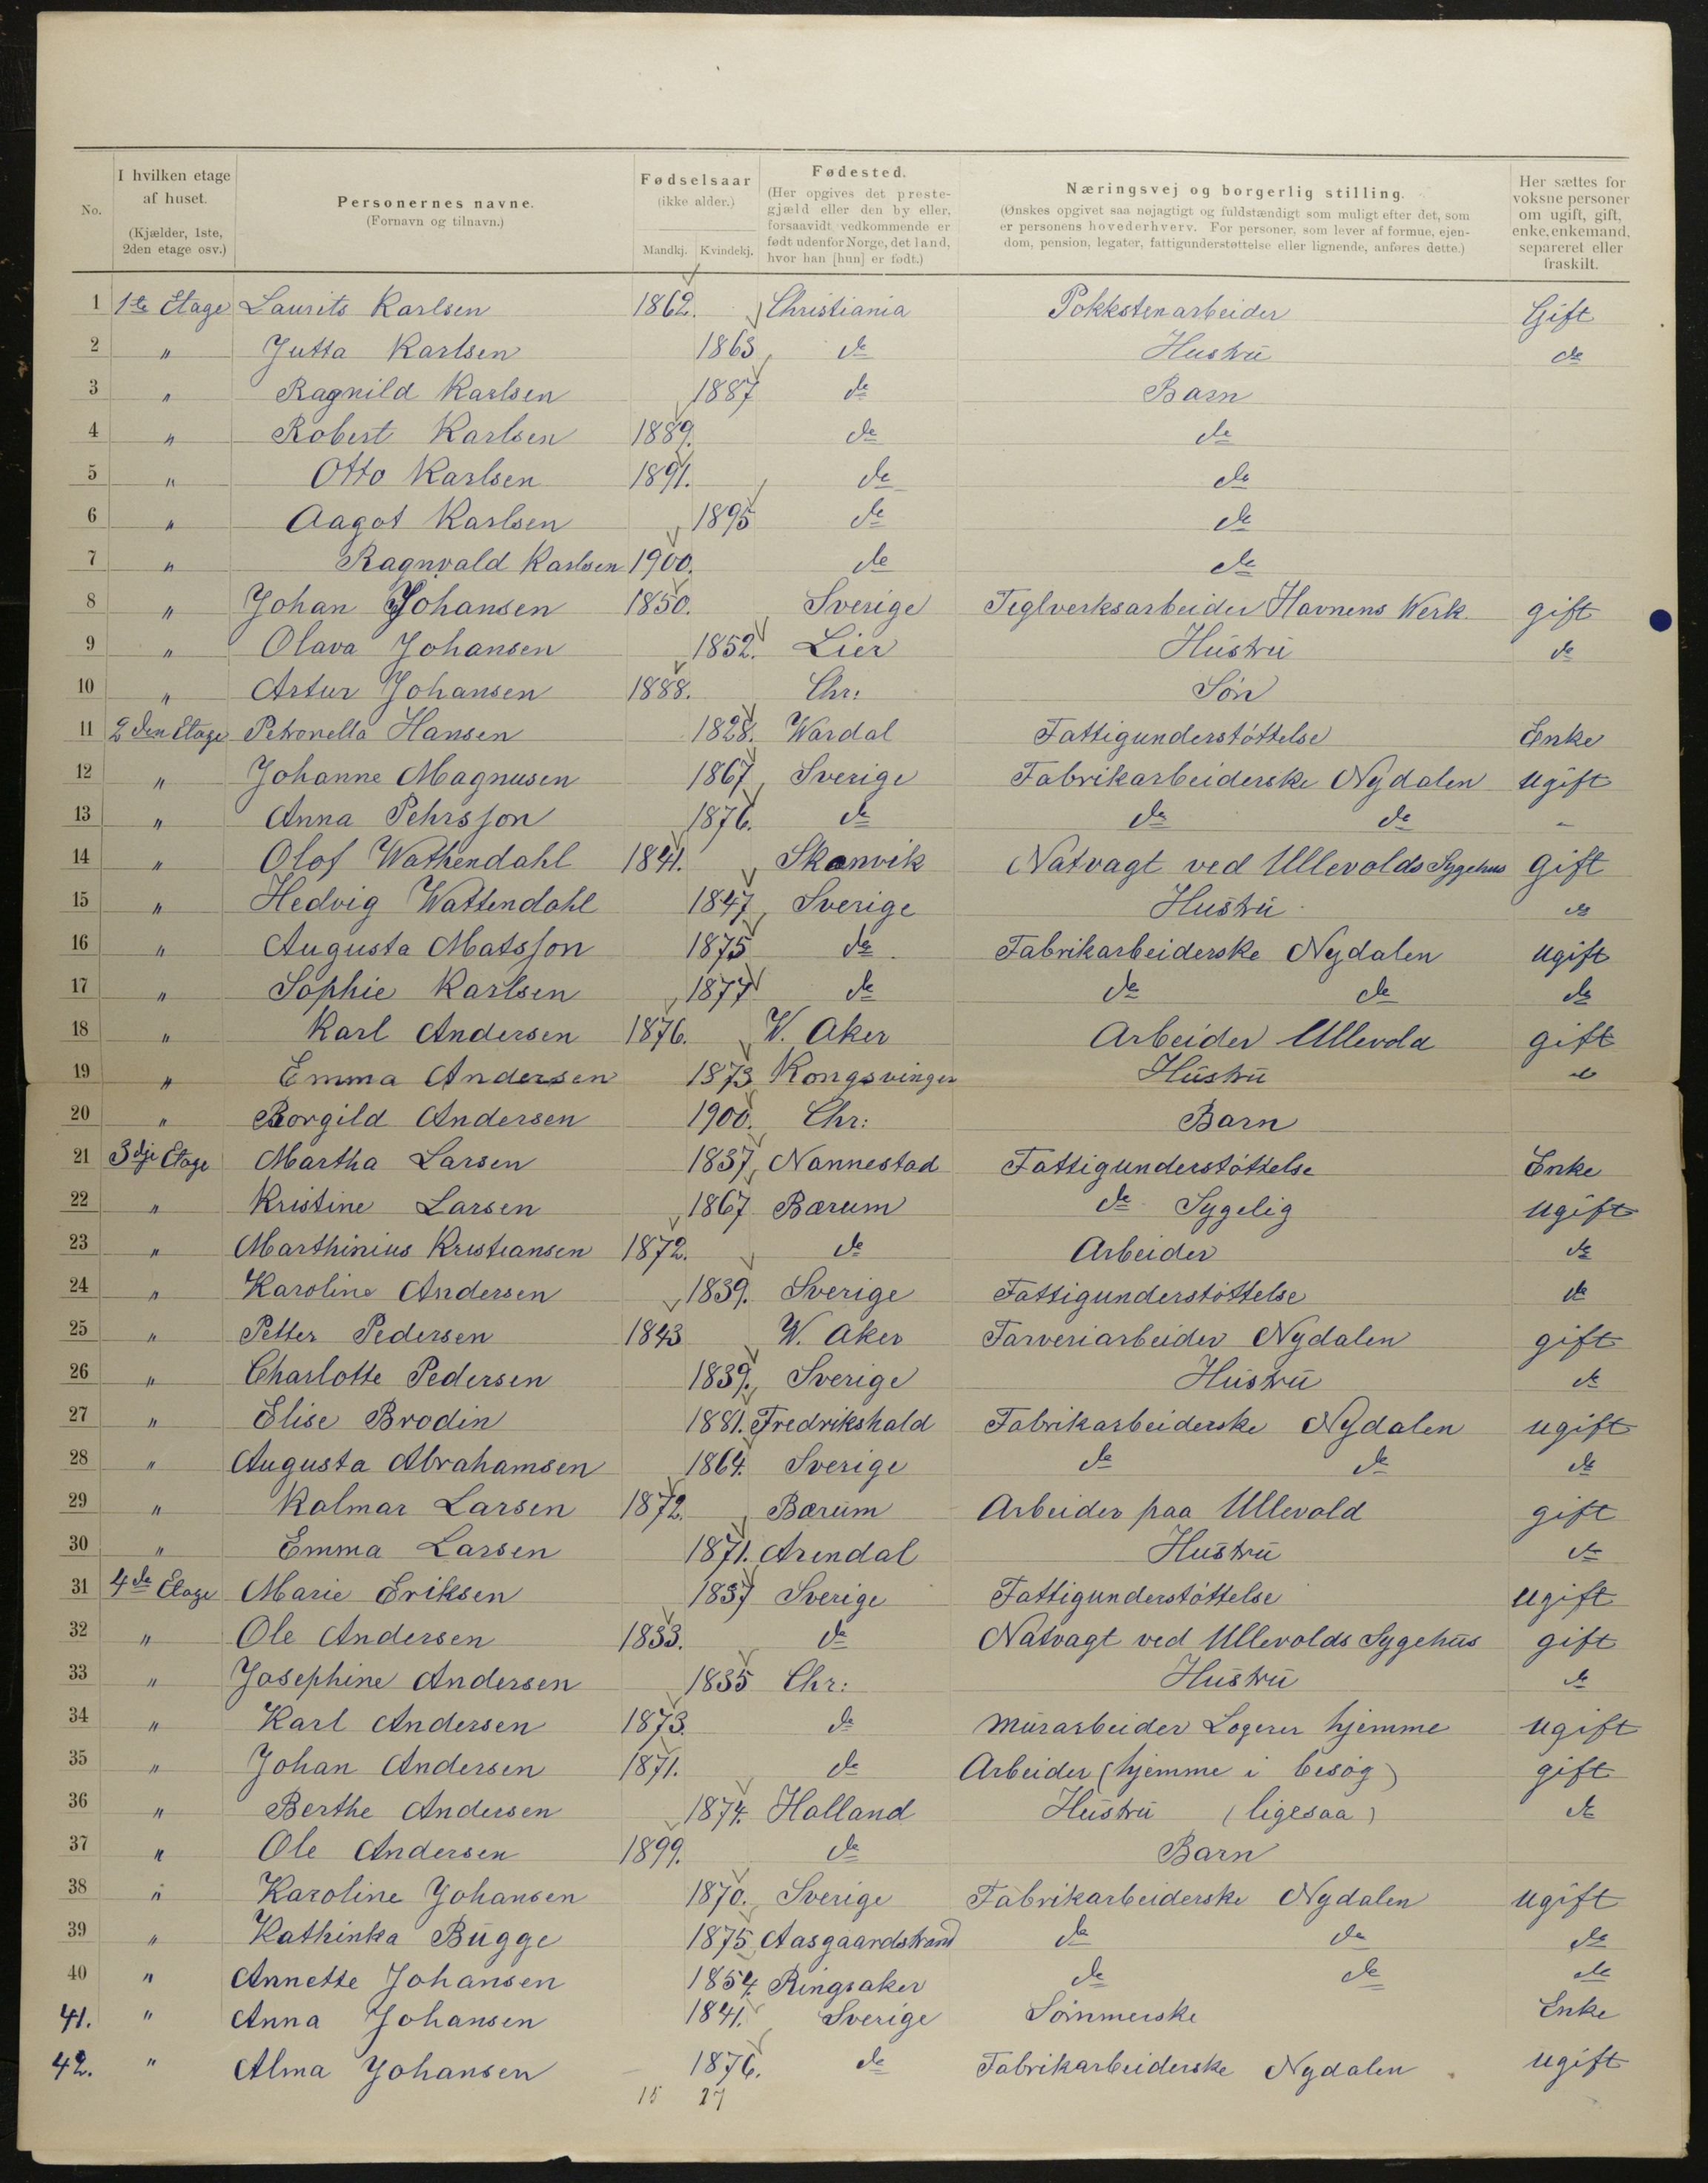 No.
I hvilken etage af huset. (Kjælder, 1ste, 2den etage osv.)
Personernes navne. (Fornavn og tilnavn.)
Fødselsaar (ikke alder.) Mandkj. Kvindekj.
Fødested. (Her opgives det prestegjæld eller den by eller, forsaavidt vedkommende er født udenfor Norge, det land, hvor han [hun] er født.)
Næringsvej og borgerlig stilling. (Ønskes opgivet saa nøjagtigt og fuldstændigt som muligt efter det, som er personens hovederhverv. For personer, som lever af formue, ejendom, pension, legater, fattigunderstøttelse eller lignende, anføres dette.)
Her sættes for voksne personer om ugift, gift, enke, enkemand, separeret eller fraskilt.
1 1ste Etage Laurits Karlsen 1862. Christiania Pokkstenarbeider Gift
2 " Jutta Karlsen 1863 do Hustru do
3 " Ragnild Karlsen 1887 do Barn
4 " Robert Karlsen 1889. do do
5 " Otto Karlsen 1891. do do
6 " Aagot Karlsen 1895 do do
7 " Ragnvald Karlsen 1900. do do
8 " Johan Johansen 1850. Sverige Teglverksarbeider Havnens Werk. gift
9 " Olava Johansen 1852. Lier Hustru do
10 " Artur Johansen 1888. Chr: Søn
11 2den Etage Petronella Hansen 1828. Wardal Fattigunderstøttelse Enke
12 " Johanne Magnusen 1867 Sverige Fabrikarbeiderske Nydalen ugift
13 " Anna Pehrsson 1876. do do do -
14 " Olof Wathendahl 1841. Skonvik Natvagt ved Ullevolds Sygehus gift
15 " Hedvig Wattendahl 1847 Sverige Hustru do
16 " Augusta Matsson 1875 do Fabrikarbeiderske Nydalen ugift
17 " Sophie Karlsen 1877 do do do do
18 " Karl Andersen 1876. W. Aker Arbeider Ullevola gift
19 " Emma Andersen 1873 Kongsvinger Hustru do
20 " Borgild Andersen 1900. Chr: Barn
21 3dje Etage Martha Larsen 1837 Nannestad Fattigunderstøttelse Enke
22 " Kristine Larsen 1867 Bærum do Sygelig ugift
23 " Marthinius Kristiansen 1872. do Arbeider do
24 " Karoline Andersen 1839. Sverige Fattigunderstøttelse do
25 " Petter Pedersen 1843 W. Aker Farveriarbeider Nydalen gift
26 " Charlotte Pedersen 1839. Sverige Hustru do
27 " Elise Brodin 1881. Fredrikshald Fabrikarbeiderske Nydalen ugift
28 " Augusta Abrahamsen 1864. Sverige do do do
29 " Kalmar Larsen 1872. Bærum Arbeider paa Ullevold gift
30 " Emma Larsen 1871. Arendal Hustru do
31 4de Etage Marie Eriksen 1837 Sverige Fattigunderstøttelse ugift
32 " Ole Andersen 1833. do Natvagt ved Ullevolds Sygehus gift
33 " Josephine Andersen 1835 Chr: Hustru do
34 " Karl Andersen 1873. do Murarbeider Logerer hjemme ugift
35 " Johan Andersen 1871. do Arbeider (hjemme i besøg) gift
36 " Berthe Andersen 1874. Halland Hustru (ligesaa) do
37 " Ole Andersen 1899. do Barn
38 " Karoline Johansen 1870. Sverige Fabrikarbeiderske Nydalen ugift
39 " Kathinka Bugge 1875 Aasgaardstrand do do do
40 " Annette Johansen 1854. Ringsaker do do do
41. " Anna Johansen 1841. Sverige Sømmerske Enke
42. " Alma Johansen 1876. do Fabrikarbeiderske Nydalen ugift
15 27